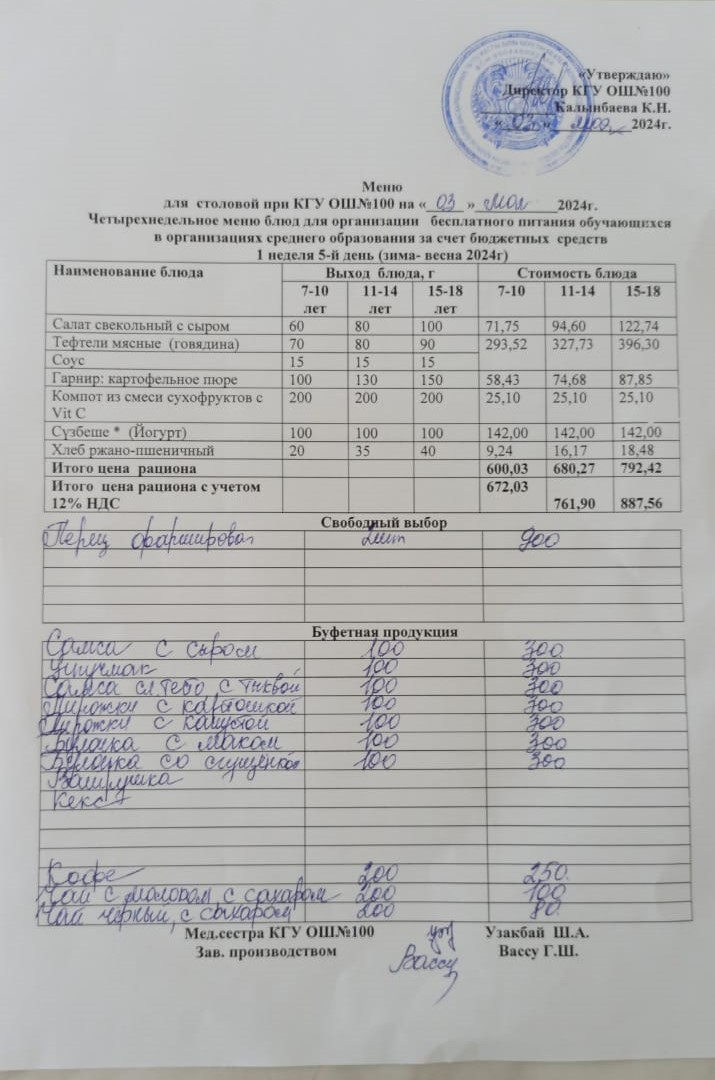 «Утверждаю»
Директор КГУ ОШ№100
Калынбаева К.Н.
« 03 » мая 2024г.
Меню
для столовой при КГУ ОШ№100 на « 03 » мая 2024г.
Четырехнедельное меню блюд для организации бесплатного питания обучающихся
в организациях среднего образования за счет бюджетных средств
1 неделя 5-й день (зима- весна 2024г)
Наименование блюда Выход блюда, г Стоимость блюда
7-10 лет 11-14 лет 15-18 лет 7-10 11-14 15-18
Салат свекольный с сыром 60 80 100 71,75 94,60 122,74
Тефтели мясные (говядина) 70 80 90 293,52 327,73 396,30
Соус 15 15 15
Гарнир: картофельное пюре 100 130 150 58,43 74,68 87,85
Компот из смеси сухофруктов с 200 200 200 25,10 25,10 25,10
Vit C
Сүзбеше * (Йогурт) 100 100 100 142,00 142,00 142,00
Хлеб ржано-пшеничный 20 35 40 9,24 16,17 18,48
Итого цена рациона 600,03 680,27 792,42
Итого цена рациона с учетом 672,03
12% НДС 761,90 887,56
Свободный выбор
Перец фарширован 2шт 900
Буфетная продукция
Самса с сыром 100 300
Учпучмак 100 300
Самса с тыквой 100 300
Пирожки с картошкой 100 300
Пирожки с капустой 100 300
Булочка с маком 100 300
Булочка со сгущенкой 100 300
Ватрушка
Кекс
Кофе 200 250
Чай с молоком, с сахаром 200 100
Чай черный, с сахаром 200 80
Мед.сестра КГУ ОШ№100 Узакбай Ш.А.
Зав. производством Вассу Вассу Г.Ш.